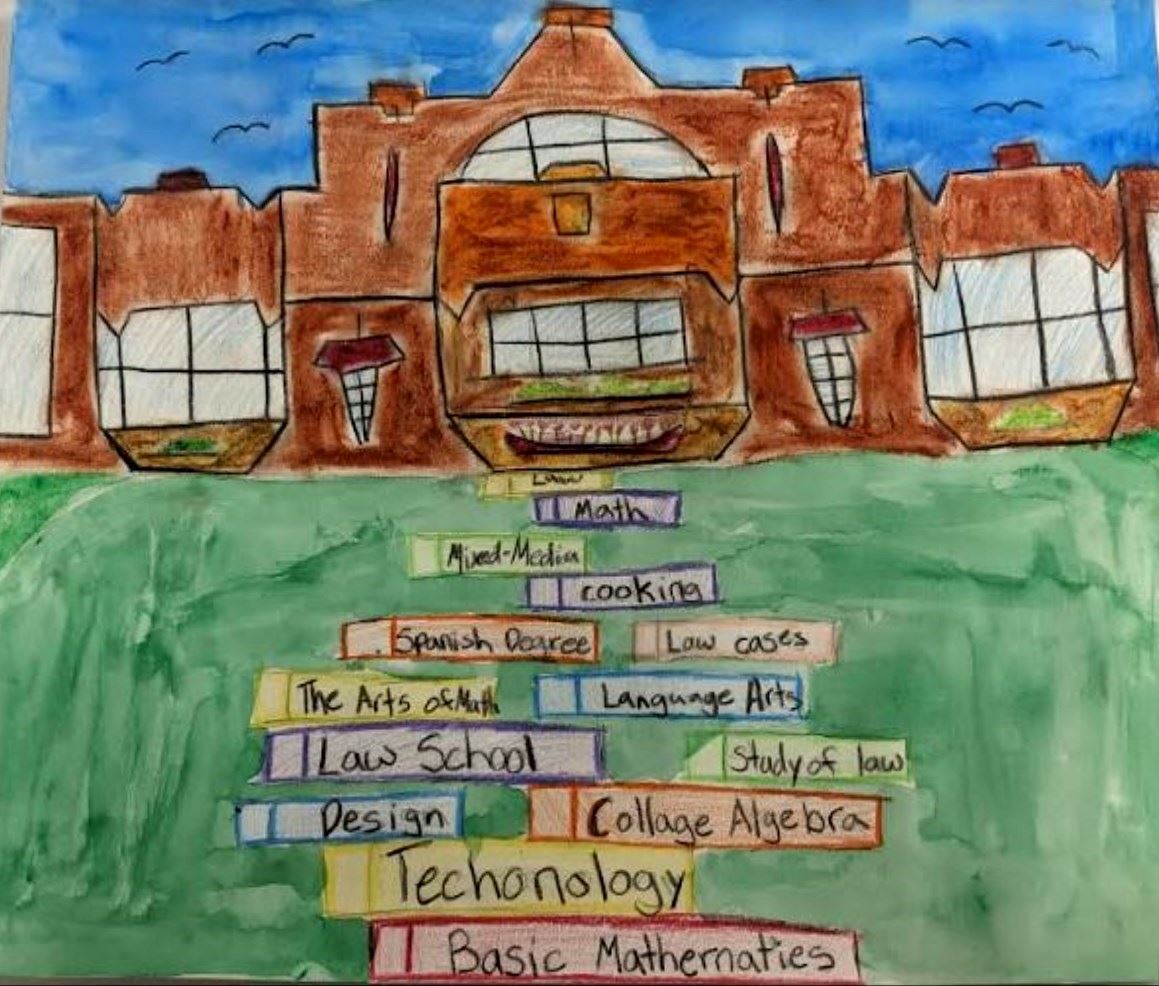 Law
Math
Mixed-Media
cooking
Spanish Degree
Law cases
The Arts of Math
Language Arts
Law School
Study of law
Design
Collage Algebra
Techonology
Basic Mathernaties